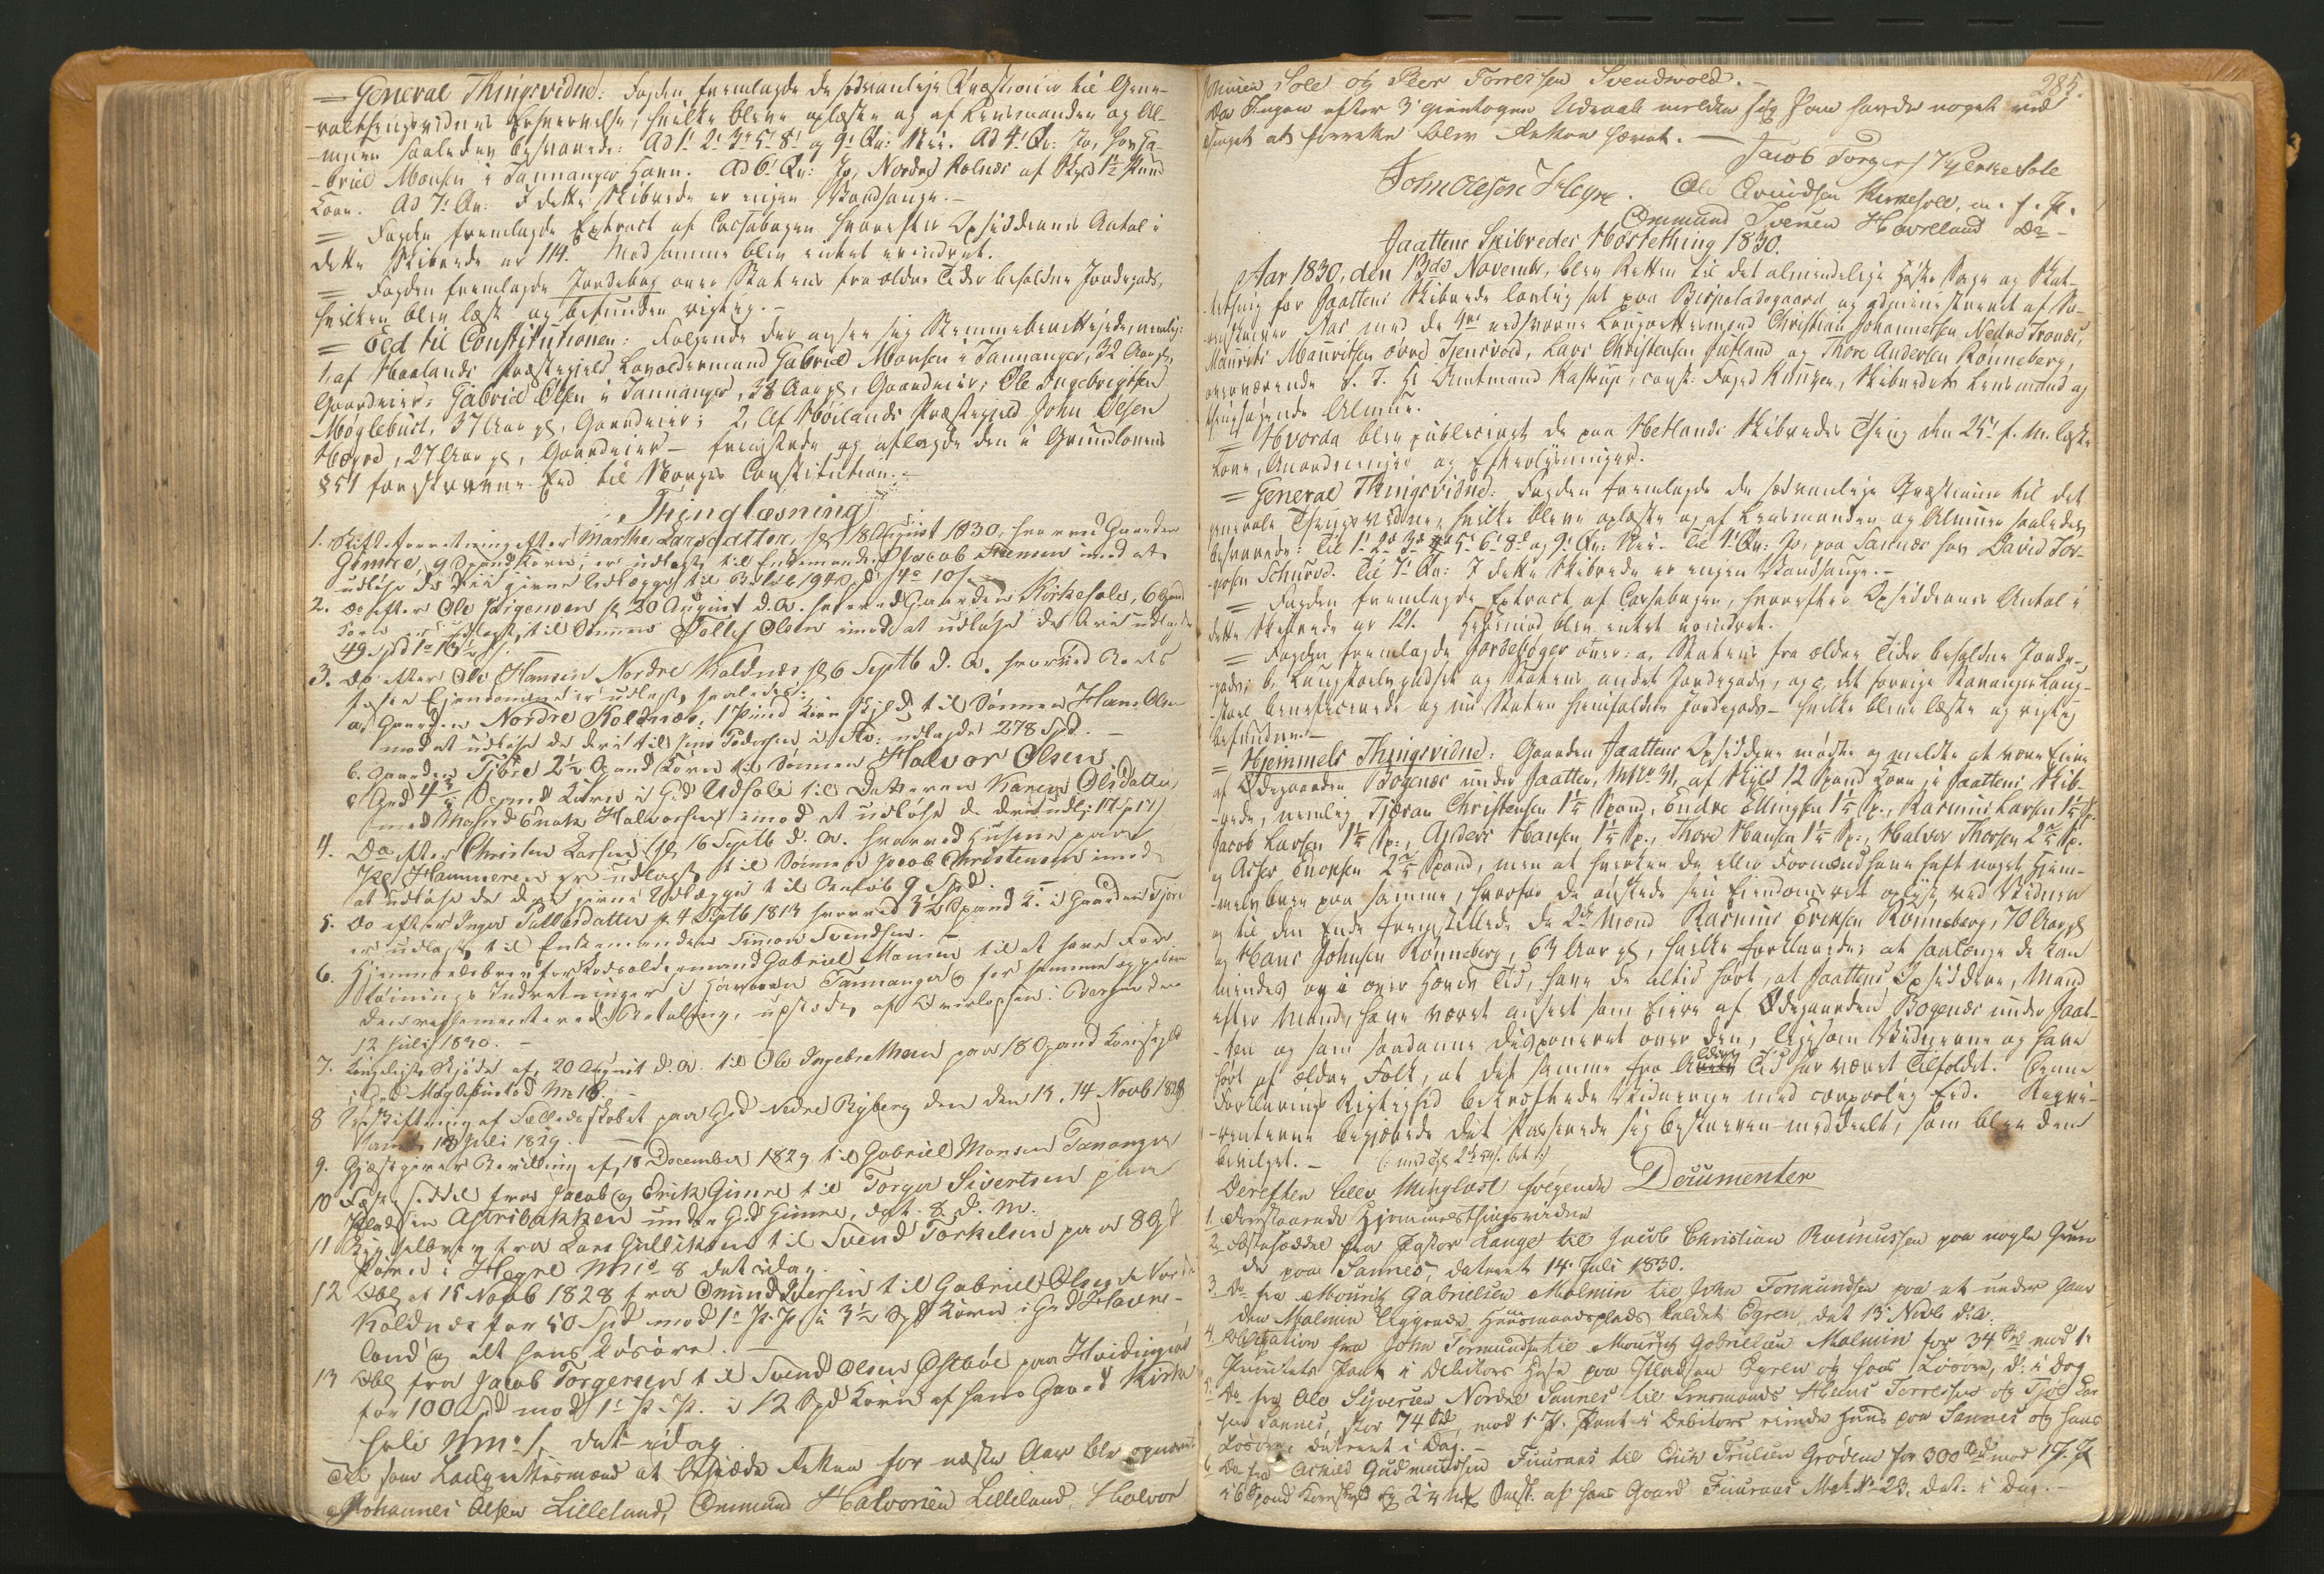 = General Thingsvidne: Fogden fremlagde de sædvanlige Qvæstioner til Gene-
-ralthingsvidnets Erhvervelse, hvilke bleve oplæste og af Lensmanden og Al-
-muen saaledes besvarede: Ad 1ᵉ 2ᵉ 3ᵉ 5ᵉ 8ᵉ og 9ᵉ Qv: Nei. Ad 4ᵉ Qv: Jo, hos Ga-
-briel Monsen i Tannanger Havn. Ad 6ᵉ Qv: Jo, Nordre Kolnæs af Skyld 1½ Pund
Korn. Ad 7ᵉ Qv: I dette Skibrede er ingen Vandsauge.-
= Fogden fremlagde Extract af Cassabogen hvorefter Opsiddernes Antal i
dette Skibrede er 114. Mod samme blev intet erindret.
= Fogden fremlagde Jordebog over Statens fra ældre Tider beholdne Jordegods,
hvilken blev læst og befunden rigtig.-
= Eed til Constitutionen: Følgende der ansee sig Stemmeberettigede, nemlig:
1, af Haalands Præstegield Lodsoldermand Gabriel Monsen i Tannanger, 32 Aar gl,
Gaardeier; Gabriel Olsen i Tannanger, 38 Aar gl, Gaardeier; Ole Ingebrigtsen
Møglebust, 37 Aar gl, Gaardeier; 2, Af Høilands Præstegield John Olsen
Høgre, 27 Aar gl, Gaardeier - fremstode og aflagde den i Grundlovens
§ 51 foreskrevne Eed til Norges Constitution.-
Thinglæsning
1. Skifteforretning efter Marthe Larsdatter, af 18 August 1830, hvorved Gaarden
Gimre, 9 Spand Korn, er udlagt til Enkemanden Jacob Svensen imod at
udløse de deri givne Udlægge til Beløb 194 Spd 4 o 10 s
2. Do efter Ole Jørgensen af 20 August d. A. hvorved Gaarden Kirkesole, 6 Spand
Korn er udlagt til Sønnen Tollef Olsen imod at udløse de deri udlagte
49 Spd 1 o 13½ s.
3. Do efter Ole Hansen Nordre Kolnæs, af 6 Septb d. A. hvorved Boets
faste Eiendomme er udlagt saaledes:
a, Gaarden Nordre Kolnæs, 1 Pund Korn Skyld til Sønnen Hans Olsen
mod at udløse de deri til sine Sødskende Arv: udlagde 278 Spd.
b. Gaarden Tjore 2½ Spand Korn til Sønnen Halvor Olsen
c And 4½ Spand Korn i Gd Udsole til Datteren Karen Olsdatter,
med Mand Enok Halvorsen imod at udløse de deri udl: 117 s 17 s
4. Do efter Christen Larsen af 16 Septb d. A. hvorved Husene paa
Pl: Hammeren er udlagt til Sønnen Jacob Christensen imod
at udløse de deri givne Udlægge til Beløb 9 Spd.
5. Do efter Inger Tollefsdatter af 4 Septb 1813 hvorved 3½ Spand K. i Gaarden Tjore
er udlagt til Enkemanden Simon Svendsen.
6. Hjemmelsbrev for Lodsoldermand Gabriel Monsen til at have For
tøinings Indretninger i Havnen Tannanger og for samme oppebære
den reglementerede Betaling, udstedt af Overlodsen i Bergen den
12 Juli 1830.-
7. Kongeligt Skjøde af 20 August d. A. til Ole Ingebretsen paa 18 Spand Kornskyld
i Gd Møglebustad No 18.
8 Udskiftning af Fælledskabet paa Gd Nedre Ryberg den den 13, 14 Novb 1828
samt 18 Juli 1829.
9. Gjæstgiver Bevilling af 18 December 1829 til Gabriel Monsen Tananger
10 Fæstesedel fra Jacob og Erik Gimre til Torger Sivertsen paa
Pladsen Astribakken under Gd Gimre, dat. 8. d. M.
11 Kjøbebrev fra Lars Gulliksen til Svend Torkelsen paa 8 Spd
Korn i Høgre No 8 dat idag.
12 Obl af 15 Novb 1828 fra Omund Iversen til Gabriel Olsen Nordre
Kolnæs for 50 Spd mod 1ᵉ Pr. Pt i 3½ Spd Korn i Gd Havre-
land og alt hans Løsøre.
13 Obl fra Jacob Torgersen til Svend Olsen Østbøe paa Hvidingsøe
for 100 Spd mod 1ᵉ Pr. Pt. i 12 Spd Korn af hans Gaard Kirke
sole No 1, dat idag
Til som Laugrettesmænd at betjene Retten for næste Aar blev opnævnt
Johannes Olsen Lilleland, Ommund Halvorsen Lilleland, Halvor
285.
Sole og Peer Torresen Svendsvold.-
Da Ingen efter 3 gientagne Udraab meldte sig som havde noget ved
Thinget at forrette blev Retten hævet.-
Jacob Torgers Kyerkesole
John Olesen Høgre. Ole Evindsen Kirkesole, m. f. P.
Ommund Iversen Havreland Do-
Jaattens Skibredes Høstething 1830.
Aar 1830, den 13de November, blev Retten til det almindelige Høste Sage og Skat-
-tething for Jaattens Skibrede lovlig sat paa Bispeladegaard og administreret af So-
renskriver Aas med de 4re eedsvorne Laugrettesmænd Christian Johannessen Nedre Tronæs,
Maurits Mauritsen øvre Tjensvold, Lars Christensen Jutland og Thore Andersen Rønneberg,
overværende S. T. Hr Amtmand Kastrup, const: Foged Knutzen, Skibredets Lensmand og
thingsøgende Almue.
= Hvorda blev publiceret de paa Hetlands Skibredes Thing den 25ᵉ f. M. læste
Love, Anordninger og Efterlysninger.
= General Thingsvidne: Fogden fremlagde de sædvanlige Qvæstioner til det
generale Thingsvidne, hvilke bleve oplæste og af Lensmanden og Almuen saaledes
besvarede: Til 1ᵉ 2ᵉ 3ᵉ 5ᵉ 6ᵉ 8ᵉ og 9ᵉ Qv: Nei. Til 4ᵉ Qv: Jo, paa Sannæs hos David Tor-
-gersen Schurve. Til 7ᵉ Qv: I dette Skibrede er ingen Vandsauge.-
= Fogden fremlagde Extract af Cassabogen, hvorefter Opsiddernes Antal i
dette Skibrede er 121. Herimod blev intet erindret.
= Fogden fremlagde Jordebøger over: a, Statens fra ældre Tider beholdne Jorde-
-gods; b, Laugstoelsgodset og Statens andet Jordegods, og c, det forrige Stavanger Laug-
-stoel beneficerede og nu Staten hiemfaldne Jordegods - hvilke bleve læste og rigtig
befundne.-
= Hjemmels Thingsvidne: Gaarden Jaattens Opsiddere mødte og meldte at være Eiere
af Ødegaarden Bogenæs under Jaatten, MNo 31, af Skyld 12 Spand Korn i Jaattens Skib-
-rede, nemlig Tjøran Christensen 1½ Spand, Endre Ellingsen 1½ Sp., Rasmus Larsen 1½ Sp.
Jacob Larsen 1½ Sp:, Anders Hansen 1½ Sp., Thore Hansen 1½ Sp:, Halvor Thorsen 2½ Sp.
og Asser Enoksen 2½ Spand, men at hverken de eller Formænd have haft noget Hiem-
-melsbrev paa samme, hvorfor de ønskede sin Eiendomsret oplyst ved Vidner
og til den Ende fremstillede de 2de Mænd Rasmus Eriksen Rønneberg, 70 Aar gl
og Hans Johnsen Rønneberg, 63 Aar gl, hvilke forklarede: at saalænge de kan
mindes og i over Hævds Tid, have de altid hørt, at Jaattens Opsiddere, Mand
efter Mand, have været anseet som Eiere af Ødegaarden Bogenæs under Jaat-
-ten og som saadanne disponeret over den, ligesom Vidnerne og have
hørt af ældre Folk, at det samme fra Alders Tid har været Tilfældet. Denne
Forklarings Rigtighed bekræftede Vidnerne med corporlig Eed. Reqvi-
-renterne begjærede det Passerede sig beskreven meddeelt, som blev dem
bevilget.-
Derefter blev thinglæst følgende Documenter
1. Ovenstaaende Hjemmelsthingsvidne
2. Fæstesæddel fra Pastor Lange til Jacob Christian Rasmussen paa nogle Grun
de paa Sannes, dateret 14 Juli 1830.
3. Do fra Mouritz Gabrielsen Malmin til John Tormundsen paa et under Gaar
den Malmin liggende Huusmandsplads kaldet Egren, dat 13 Novb d: A.
4. Obligation fra John Tormundsen til Mouritz Gabrielsen Malmin for 34 Spd mod 1ᵉ
Prioritets Pant i Debitors Huse paa Pladsen Egren og hans Løsøre, d: i Dag
5. Do fra Ole Syversen Nordre Sannes til Lensmands Aanens Torressen og Tjøl Lar
sen Sannes, stor 74 Spd, mod 1. P. Pant i Debitors eiende Huus paa Sannes og hans
Løsøre, dateret i Dag.-
6. Do fra Askild Gudmundsen Fuuraas til Erik Trulsen Grødem for 300 Spd mod 1 P. P
i 6 Spand Kornskyld og 2¼ Mk Smst. af hans Gaard Fuuraas Mat. No 23. dat: i Dag.-